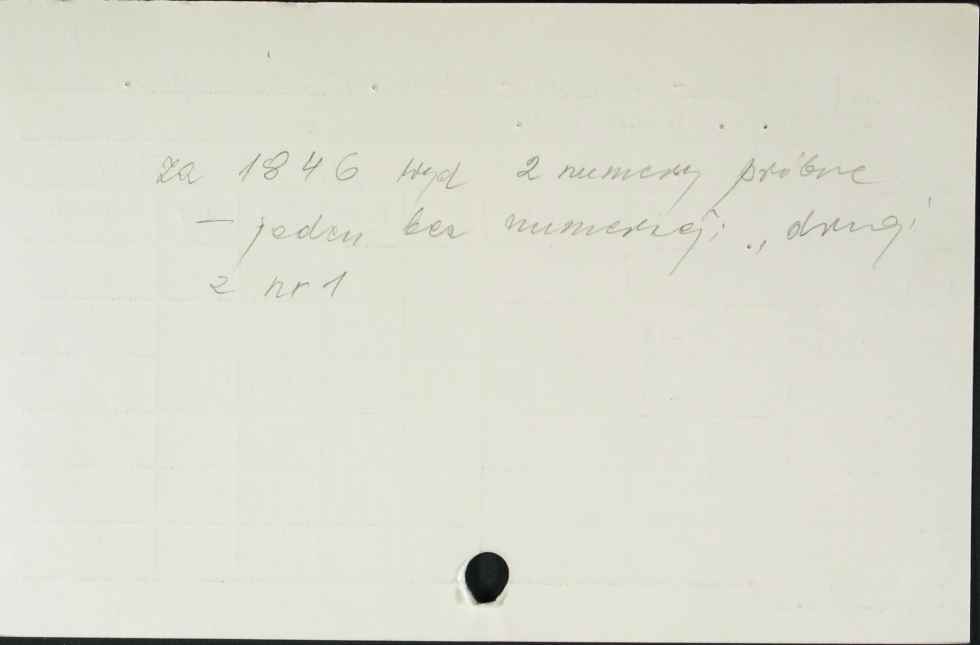 za 1846 wyd 2 numery próbne
– jeden bez numeracji, drugi
z nr 1